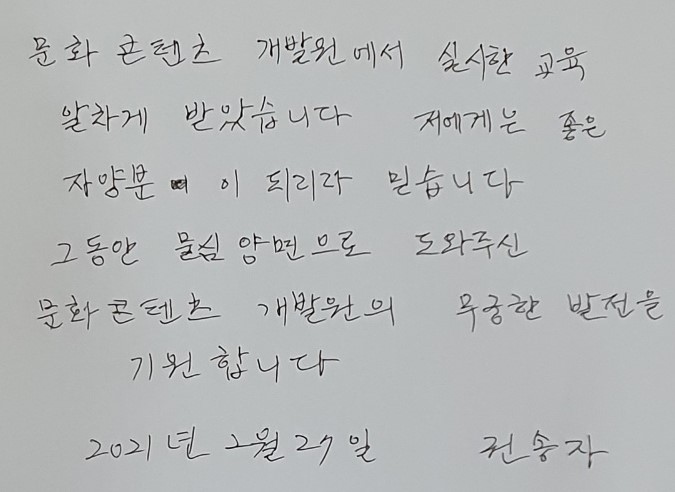 문화 콘텐츠 개발원에서 실시한 교육
알차게 받았습니다 저에게는 좋은
자양분 이 되리라 믿습니다
그동안 물심 양면으로 도와주신
문화콘텐츠 개발원의 무궁한 발전을
기원 합니다
2021년 2월 27일 권송자